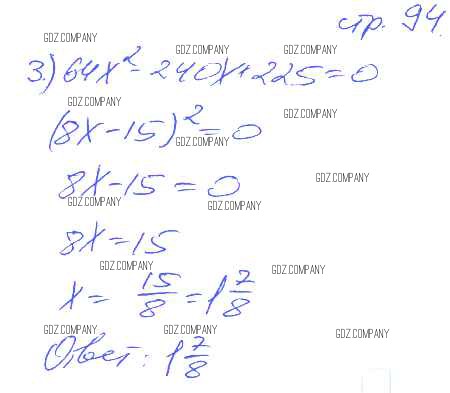 стр. 94
GDZ.COMPANY
GDZ.COMPANY GDZ.COMPANY
3.) 64x² - 240x + 225 = 0
GDZ.COMPANY
GDZ.COMPANY
(8x - 15)² = 0
GDZ.COMPANY
8x - 15 = 0
GDZ.COMPANY
GDZ.COMPANY GDZ.COMPANY
8x = 15
GDZ.COMPANY GDZ.COMPANY
x = 15/8 = 1 7/8
GDZ.COMPANY GDZ.COMPANY GDZ.COMPANY
Ответ: 1 7/8